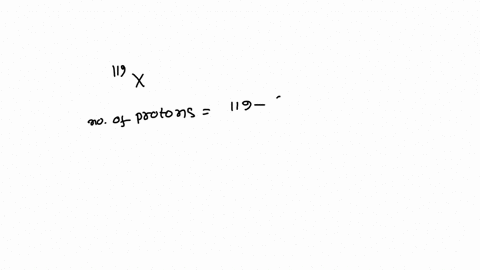 119 X
no. of protons = 119 –